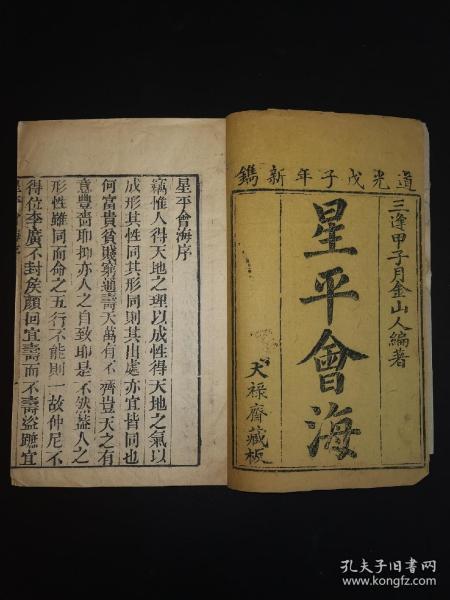 道光戊子年新鐫
三逢甲子月金山人編著
星平會海
天祿齋藏板
星平會海序
竊惟人得天地之理以成性得天地之氣以
成形其性同其形同則其出處亦宜皆同也
何富貴貧賤窮通壽夭萬有不齊豈天之有
意豐嗇耶抑亦人之自致耶是不然益人之
形性雖同而命之五行不能則一故仲尼不
得位李廣不封矦顏回宜壽而不壽盜蹠宜
孔夫子旧书网
www.kongfz.com